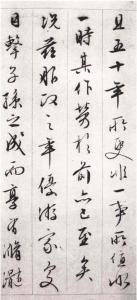 且五十年所更非一事所值非
一時其作勞於前亦已至矣
況茲服政之年優游家
目擊子孫之成而享有脩齡